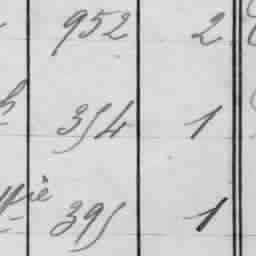 952 2
354 1
395 1